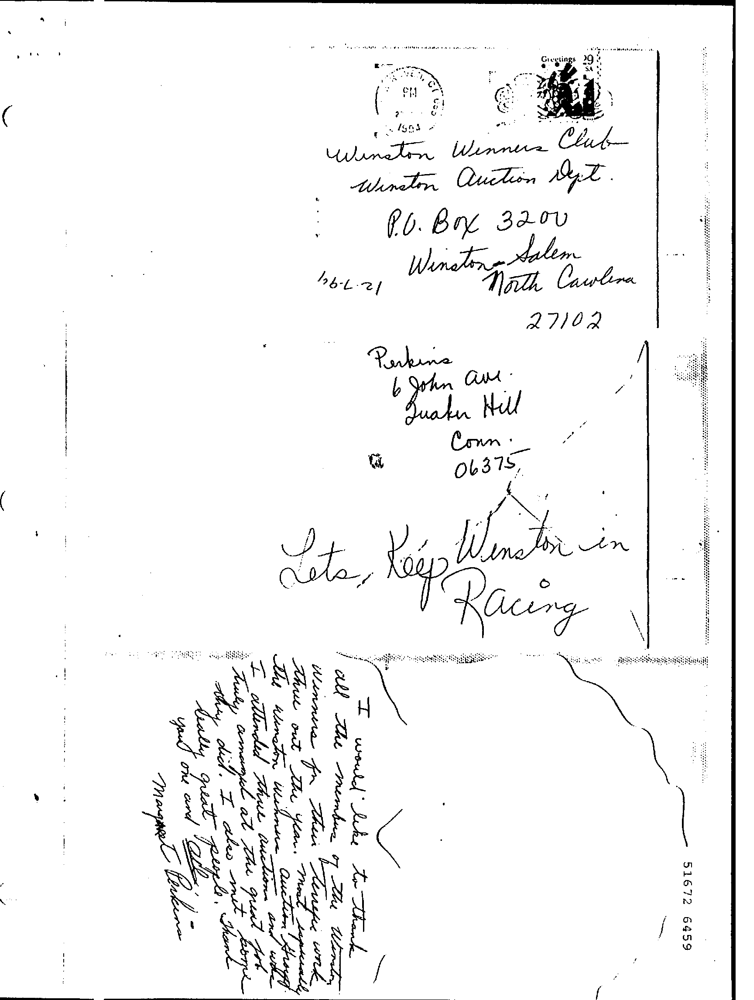 Greetings 29
PM
1993
Winston Winners Club
Winston Auction Dept.
P.O. Box 3200
Winston-Salem
North Carolina
27102
12-7-94
Perkins
6 John Ave.
Quaker Hill
Conn.
06375
Lets, Keep Winston in
Racing
I would like to thank
all the members of the Winston
Winners for their terrific work
thru out the year. Most especially
the Winston Winners auction group.
I attended three auction and was
truly amazed at the great job
they did. I also met some
really great people. Thank
you one and all.
Margaret Perkins
51672 6459